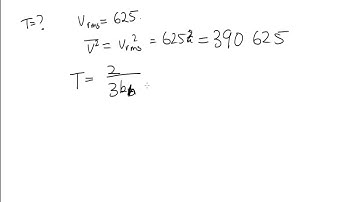 T=? V_rms = 625.
V̅² = V_rms² = 625² = 390 625
T = 2/3k